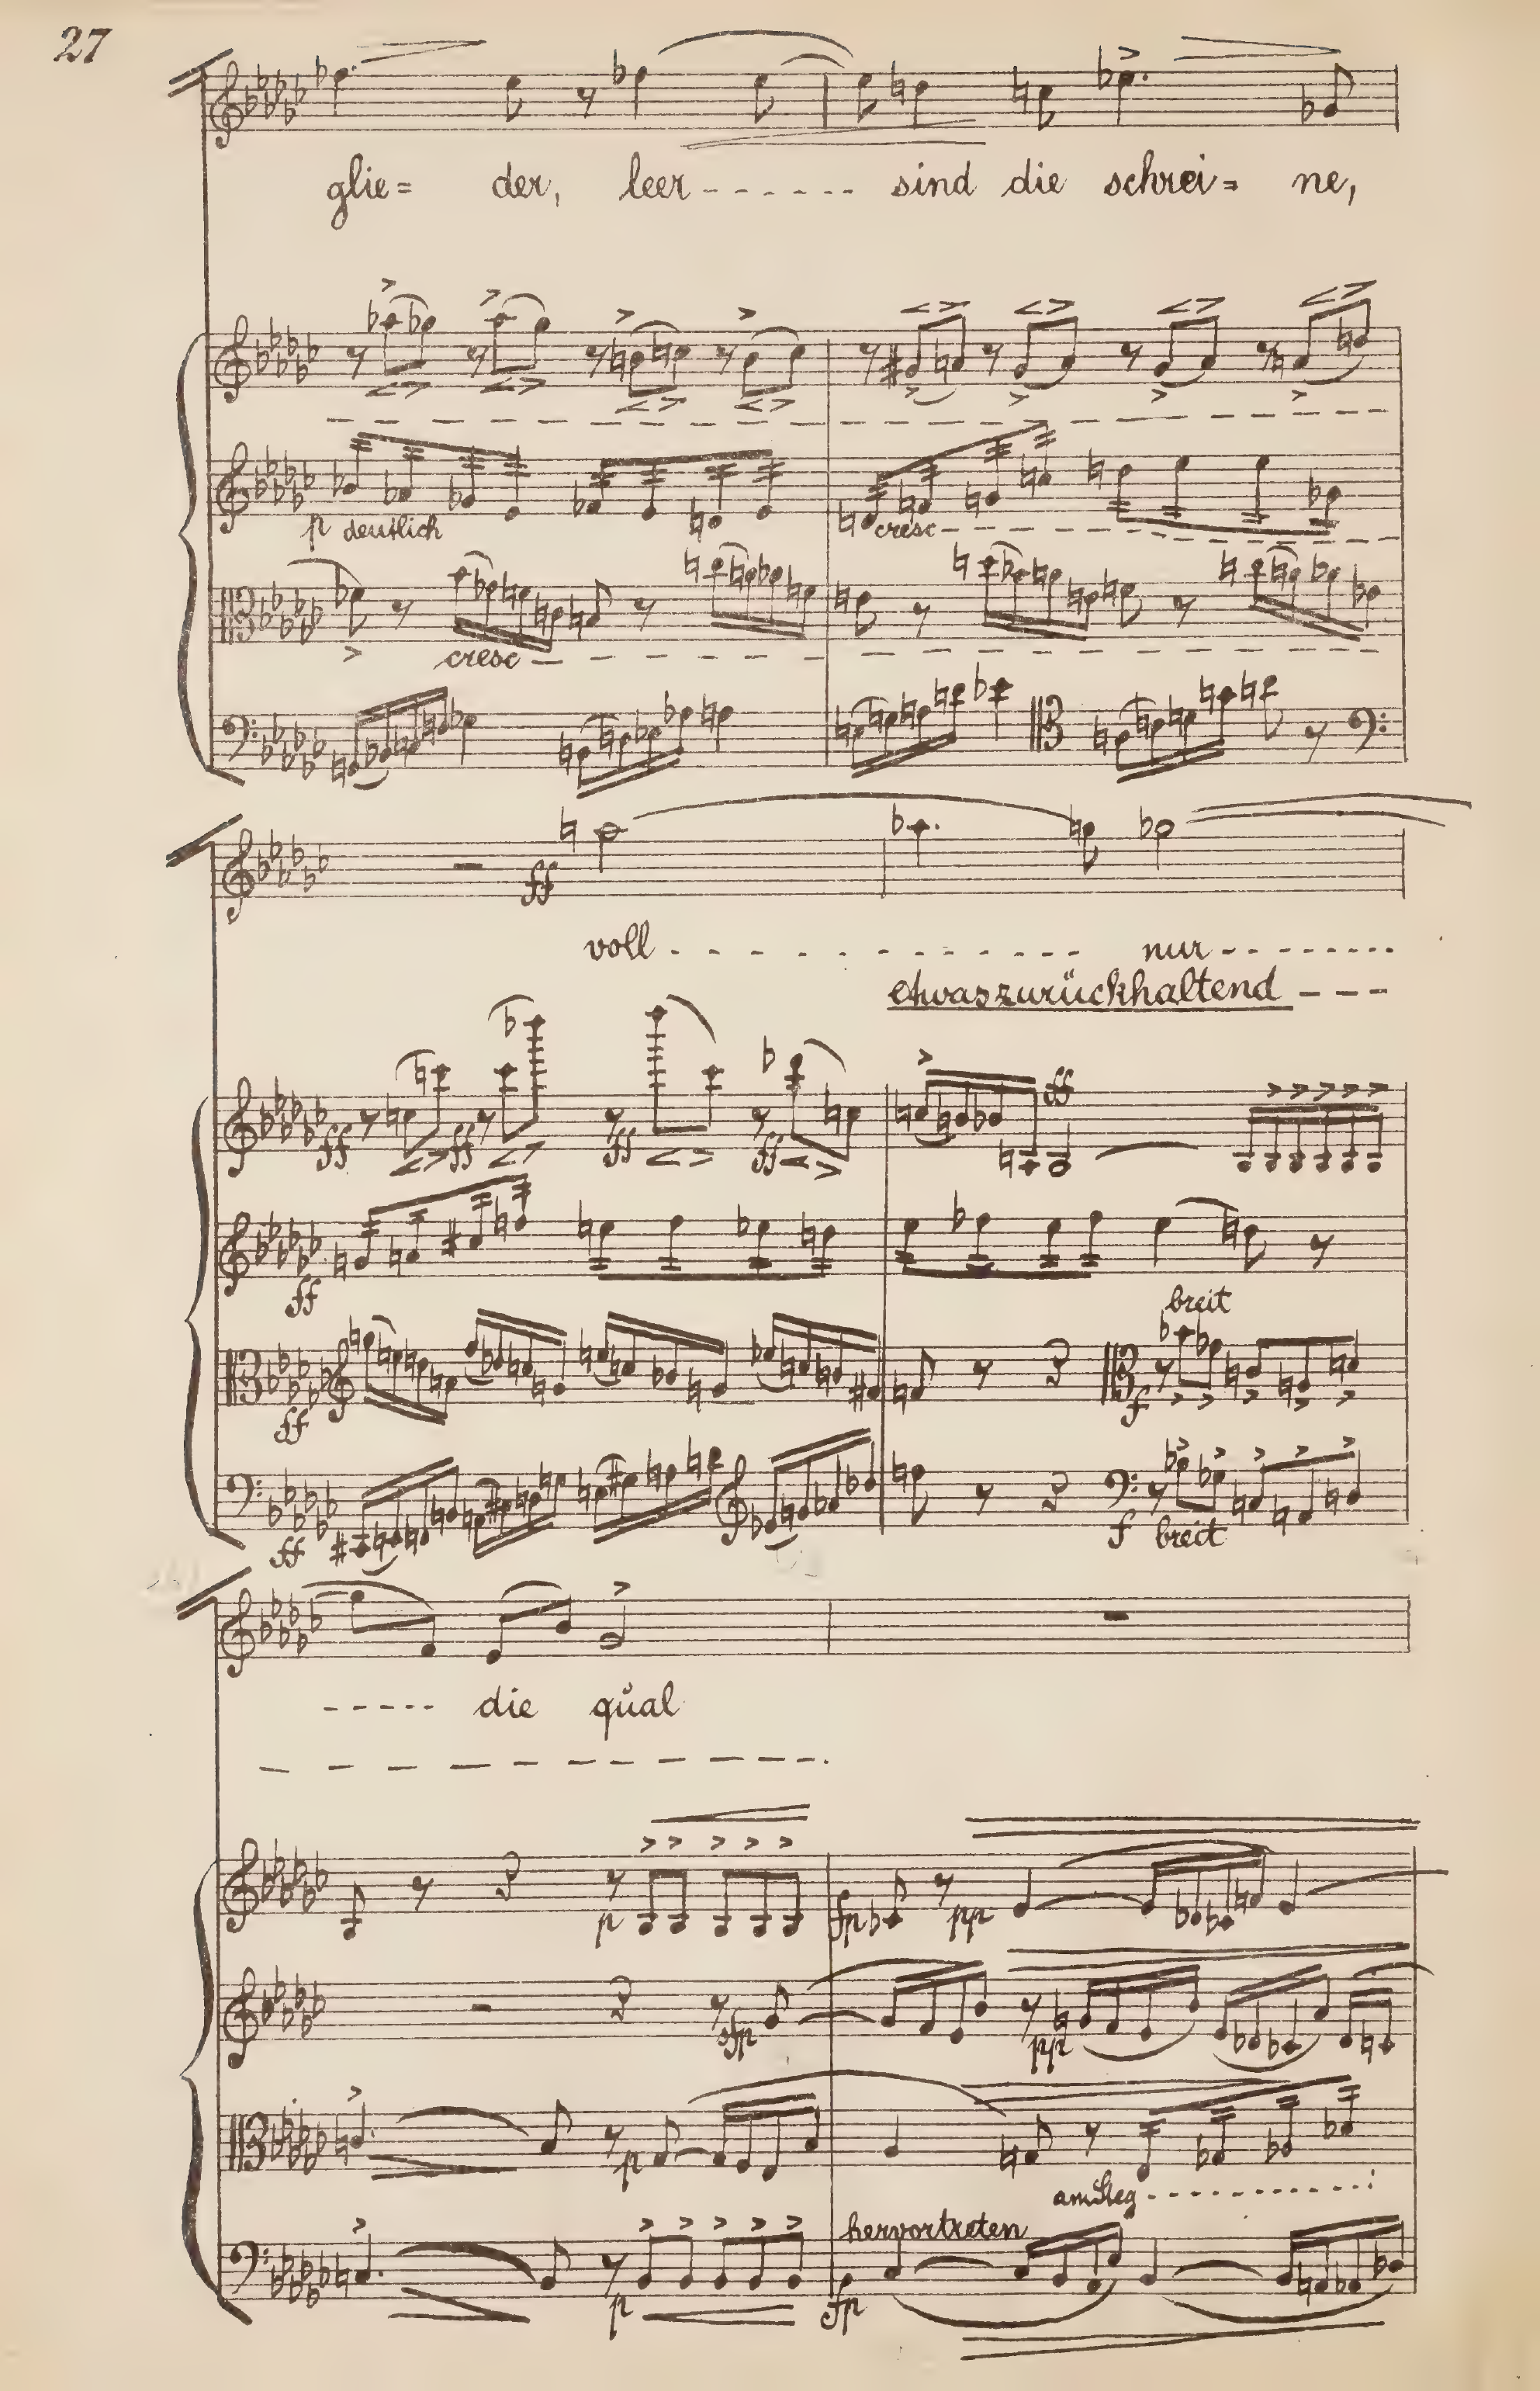 27
glie= der, leer------ sind die schrei= ne,
p deutlich
cresc
cresc
ff
voll - - - - - - - - - - - nur - - - - - - - -
etwas zurückhaltend - - -
ff ff ff ff ff
ff
breit
ff f
ff f breit
----- die qual
p fp pp
sfp pp
p
am Steg - - - - - - - - - - -
hervortreten
p fp